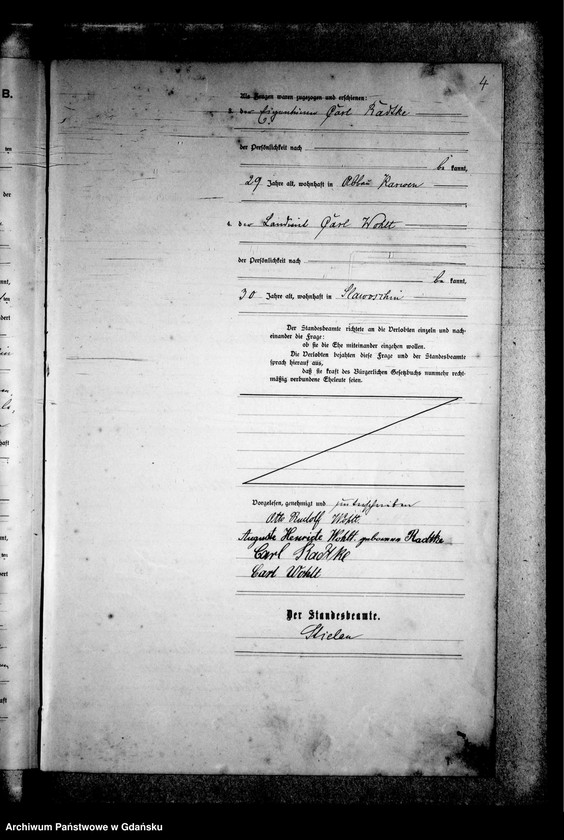 4
B.
Als Zeugen waren zugezogen und erschienen:
3. der Eigentümer Carl Radtke
der Persönlichkeit nach
be kannt,
29 Jahre alt, wohnhaft in Abbau Karwen
;
4. der Landwirt Carl Wohlt
der Persönlichkeit nach
be kannt,
30 Jahre alt, wohnhaft in Slawoschin
Der Standesbeamte richtete an die Verlobten einzeln und nach-
einander die Frage:
ob sie die Ehe miteinander eingehen wollen.
Die Verlobten bejahten diese Frage und der Standesbeamte
sprach hierauf aus,
daß sie kraft des Bürgerlichen Gesetzbuchs nunmehr recht-
mäßig verbundene Eheleute seien.
Vorgelesen, genehmigt und unterschrieben
Otto Rudolf Wohlt.
Auguste Henriete Wohlt geborene Radtke
Carl Radtke
Carl Wohlt
Der Standesbeamte.
Archiwum Państwowe w Gdańsku